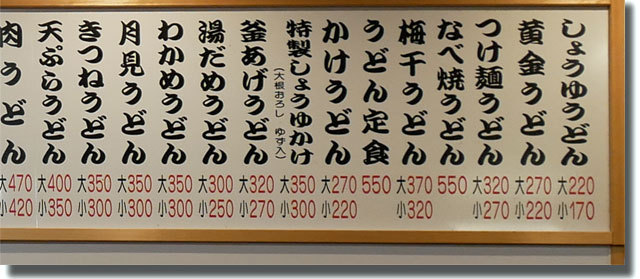 しょうゆうどん 大220 小170
黄金うどん 大270 小220
つけ麺うどん 大320 小270
なべ焼うどん 550
梅干うどん 大370 小320
うどん定食 550
かけうどん 大270 小220
特製しょうゆかけ (大根おろし ゆず入) 大350 小300
釜あげうどん 大320 小270
湯だめうどん 大300 小250
わかめうどん 大350 小300
月見うどん 大350 小300
きつねうどん 大350 小300
天ぷらうどん 大400 小350
肉うどん 大470 小420